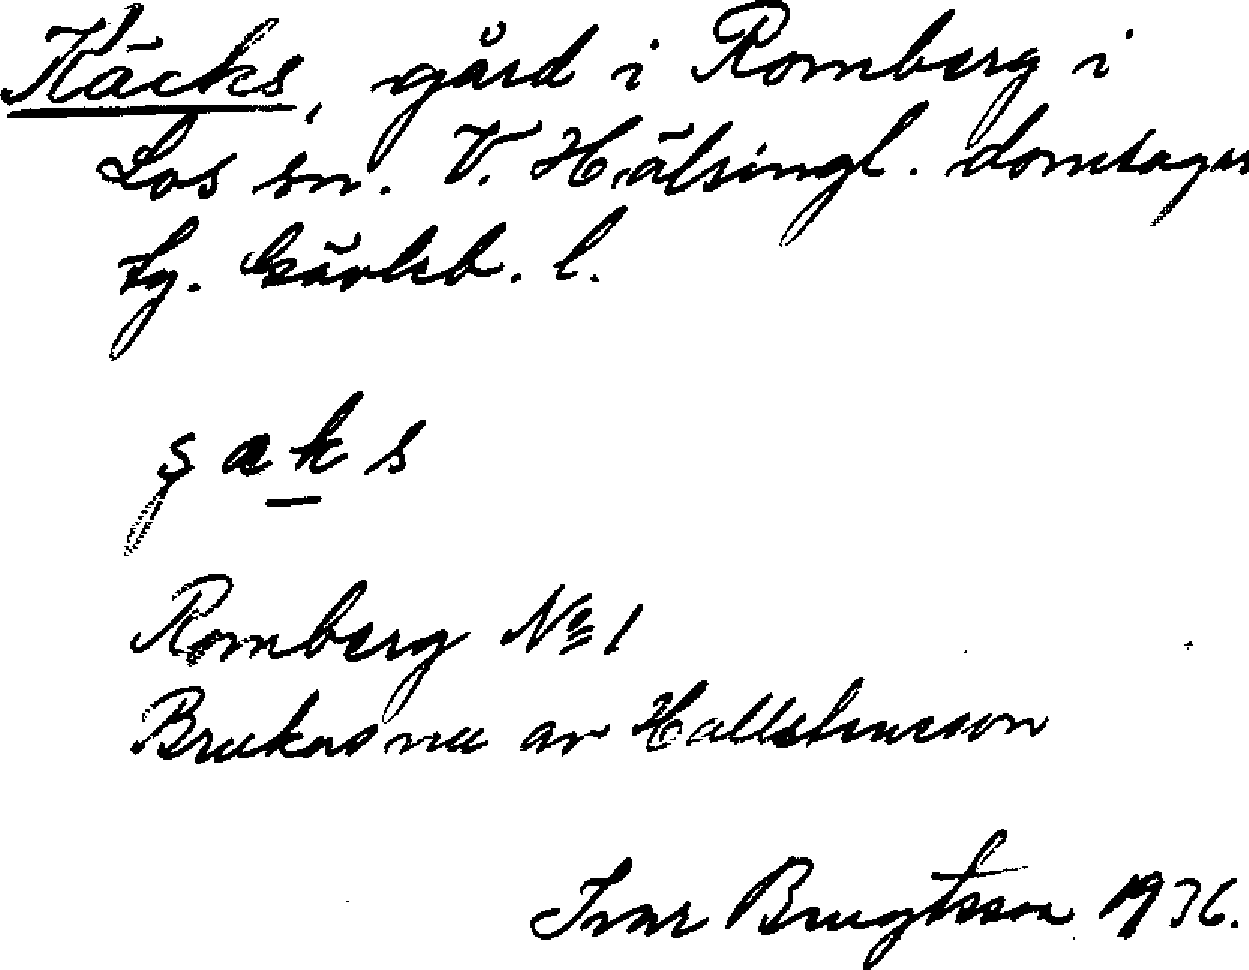 Käcks, gård i Romberg i
Los sn. V. Hälsingl. domsaga
tg. Gävleb. l.
şaks
Romberg № 1
Brukas nu av Hallstensson
Ivar Bengtsson 1936.